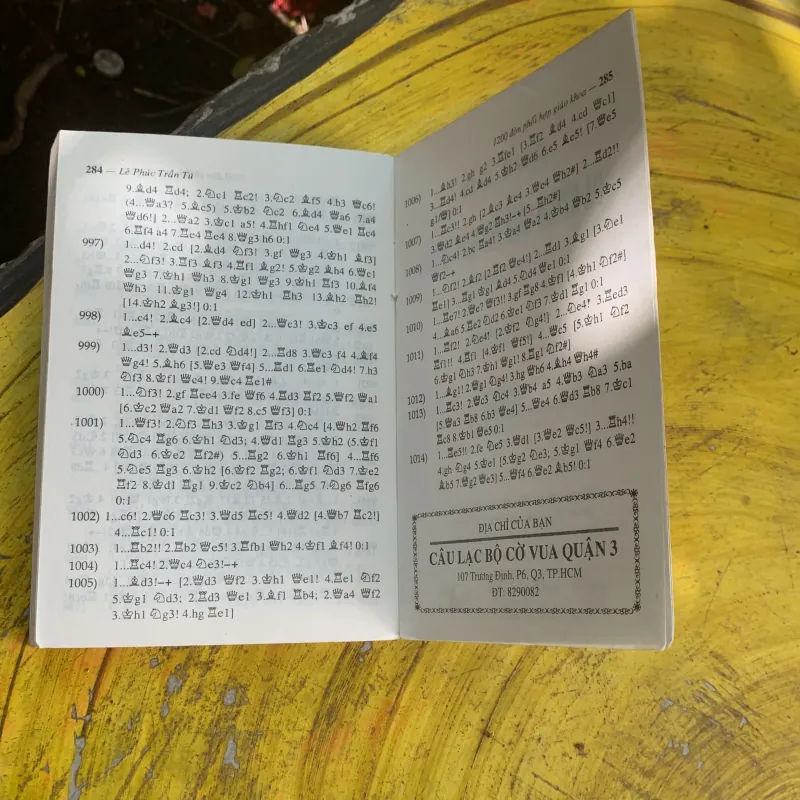 284 — Lê Phúc Trần Tú
9.♗d4 ♖d4; 2.♘c1 ♖c2! 3.♘c2 ♗f5 4.b3 ♕c6!
(4...♕a3? 5.♗c5) 5.♔b2 ♘c2 6.♗d4 ♕a6 7.a4
♕d6!] 2...♕a2 3.♔c1 a5! 4.♖hf1 ♘e4 5.♕e1 ♖c4
6.♖f4 a4 7.♖c4 ♖e4 8.♕g3 h6 0:1
997) 1...d4! 2.cd [2.♗d4 ♘f3! 3.gf ♕g3 4.♔h1 ♗f3]
2...♘f3! 3.♖f3 ♗f3 4.♖f1 ♗g2! 5.♔g2 ♗h4 6.♕c1
♕g3 7.♔h1 ♕h3 8.♔g1 ♕g3 9.♔h1 ♖f3 10.♗f4
♕h3 11.♔g1 ♕g4 12.♔h1 ♖h3 13.♗h2 ♖h2!
[14.♔h2 ♗g3!] 0:1
998) 1...c4! 2.♗c4 [2.♕d4 ed] 2...♕c3! 3.♔c3 ef 4.e5
♗e5–+
999) 1...d3! 2.♕d3 [2.cd ♘d4!] 2...♖d8 3.♕c3 f4 4.♗f4
♕g4! 5.♗h6 [5.♕e3 ♕f4] 5...♖d1 6.♖e1 ♘d4! 7.h3
♘f3 8.♔f1 ♕c4! 9.♕c4 ♖e1#
1000) 1...♘f3! 2.gf ♖ee4 3.fe ♕f6 4.♖d3 ♖f2 5.♕f2 ♕a1
[6.♔c2 ♕a2 7.♔d1 ♕f2 8.c5 ♕f3] 0:1
1001) 1...♕f3! 2.♘f3 ♖h3 3.♔g1 ♖f3 4.♘c4 [4.♕h2 ♖f6
5.♘c4 ♖g6 6.♔h1 ♘d3; 4.♕d1 ♖g3 5.♔h2 (5.♔f1
♘d3 6.♔e2 ♖f2#) 5...♖g2 6.♔h1 ♖f6] 4...♖f6
5.♘e5 ♖g3 6.♔h2 [6.♔f2 ♖g2; 6.♔f1 ♘d3 7.♔e2
♖f2 8.♔d1 ♖g1 9.♔c2 ♘b4] 6...♖g5 7.♘g6 ♖fg6
0:1
1002) 1...c6! 2.♕c6 ♖c3! 3.♕d5 ♖c5! 4.♕d2 [4.♕b7 ♖c2!]
4...♖c1! 0:1
1003) 1...♖b2!! 2.♖b2 ♕e5! 3.♖fb1 ♕h2 4.♔f1 ♗f4! 0:1
1004) 1...♖c4! 2.♕c4 ♘e3!–+
1005) 1...♗d3!–+ [2.♕d3 ♕f2 3.♔h1 ♕e1! 4.♖e1 ♘f2
5.♔g1 ♘d3; 2.♖d3 ♕e1 3.♗f1 ♖b4; 2.♕a4 ♕f2
3.♔h1 ♘g3! 4.hg ♖e1]
1200 đòn phối hợp giáo khoa — 285
1006) 1...♗h3! 2.gh g2 3.♖fe1 [3.♖f2 ♗d4 4.cd ♕c1]
3...♖d4! 4.cd ♗d4 5.♔h2 ♕d6 6.e5 ♗c5! [7.♕e5
g1/♕] 0:1
1007) 1...♖c3!! 2.gh [2.♗c3 ♗e4 3.♕c4 ♕h2#] 2...♖d2!!
3.♕d2 ♗e4 4.♕g2 ♖h3!–+ [5...♖h2#]
1008) 1...♘c4! 2.bc ♖a4! 3.♔a4 ♕a2 4.♔b4 ♕b2 5.♔c5
♕f2–+
1009) 1...♘f2! 2.♗f2 [2.♖f2 ♕c1!] 2...♖d1 3.♗g1 [3.♘e1
♖e1] 3...♖g1 4.♔g1 ♗d4 5.♘d4 ♕e1 0:1
1010) 1...♖e7! 2.♕e7 ♕f3!! 3.gf ♖g8 4.♔f1 [4.♔h1 ♘f2#]
4...♗a6 5.♖e2 ♘d2 6.♔e1 ♘f3 7.♔d1 ♖g1 0:1
1011) 1...♖f2! 2.♘e4! [2.♔f2 ♘g4!] 2...♘e4! 3.♖ed3
♖f1!! 4.♖f1 [4.♔f1 ♕f5!] 4...♕c5 [5.♔h1 ♘f2
6.♔g1 ♘h3 7.♔h1 ♕g1! 8.♖g1 ♘f2#]
1012) 1...♗g1! 2.♕g1 ♘g3! 3.hg ♕h6 4.♗h4 ♕h4#
1013) 1...♖c3! 2.♕c3 ♘c4 3.♕b4 a5 4.♕b3 ♘a3 5.ba
[5.♕a3 ♖b8 6.b3 ♕e4] 5...♕e4 6.♕d3 ♖b8 7.♔c1
♖c8 8.♔b1 ♕e5 0:1
1014) 1...♖e5!! 2.fe ♘e5 3.♕d1 [3.♕e2 ♕c5!] 3...♖h4!!
4.gh ♘g4 5.♔e1 [5.♔g2 ♘e3; 5.♔g1 ♕f4 6.♕e2
♗b5 7.♕g2 ♕e3] 5...♕f4 6.♕e2 ♗b5! 0:1
ĐỊA CHỈ CỦA BẠN
CÂU LẠC BỘ CỜ VUA QUẬN 3
107 Trương Định, P6, Q3, TP.HCM
ĐT: 8290082